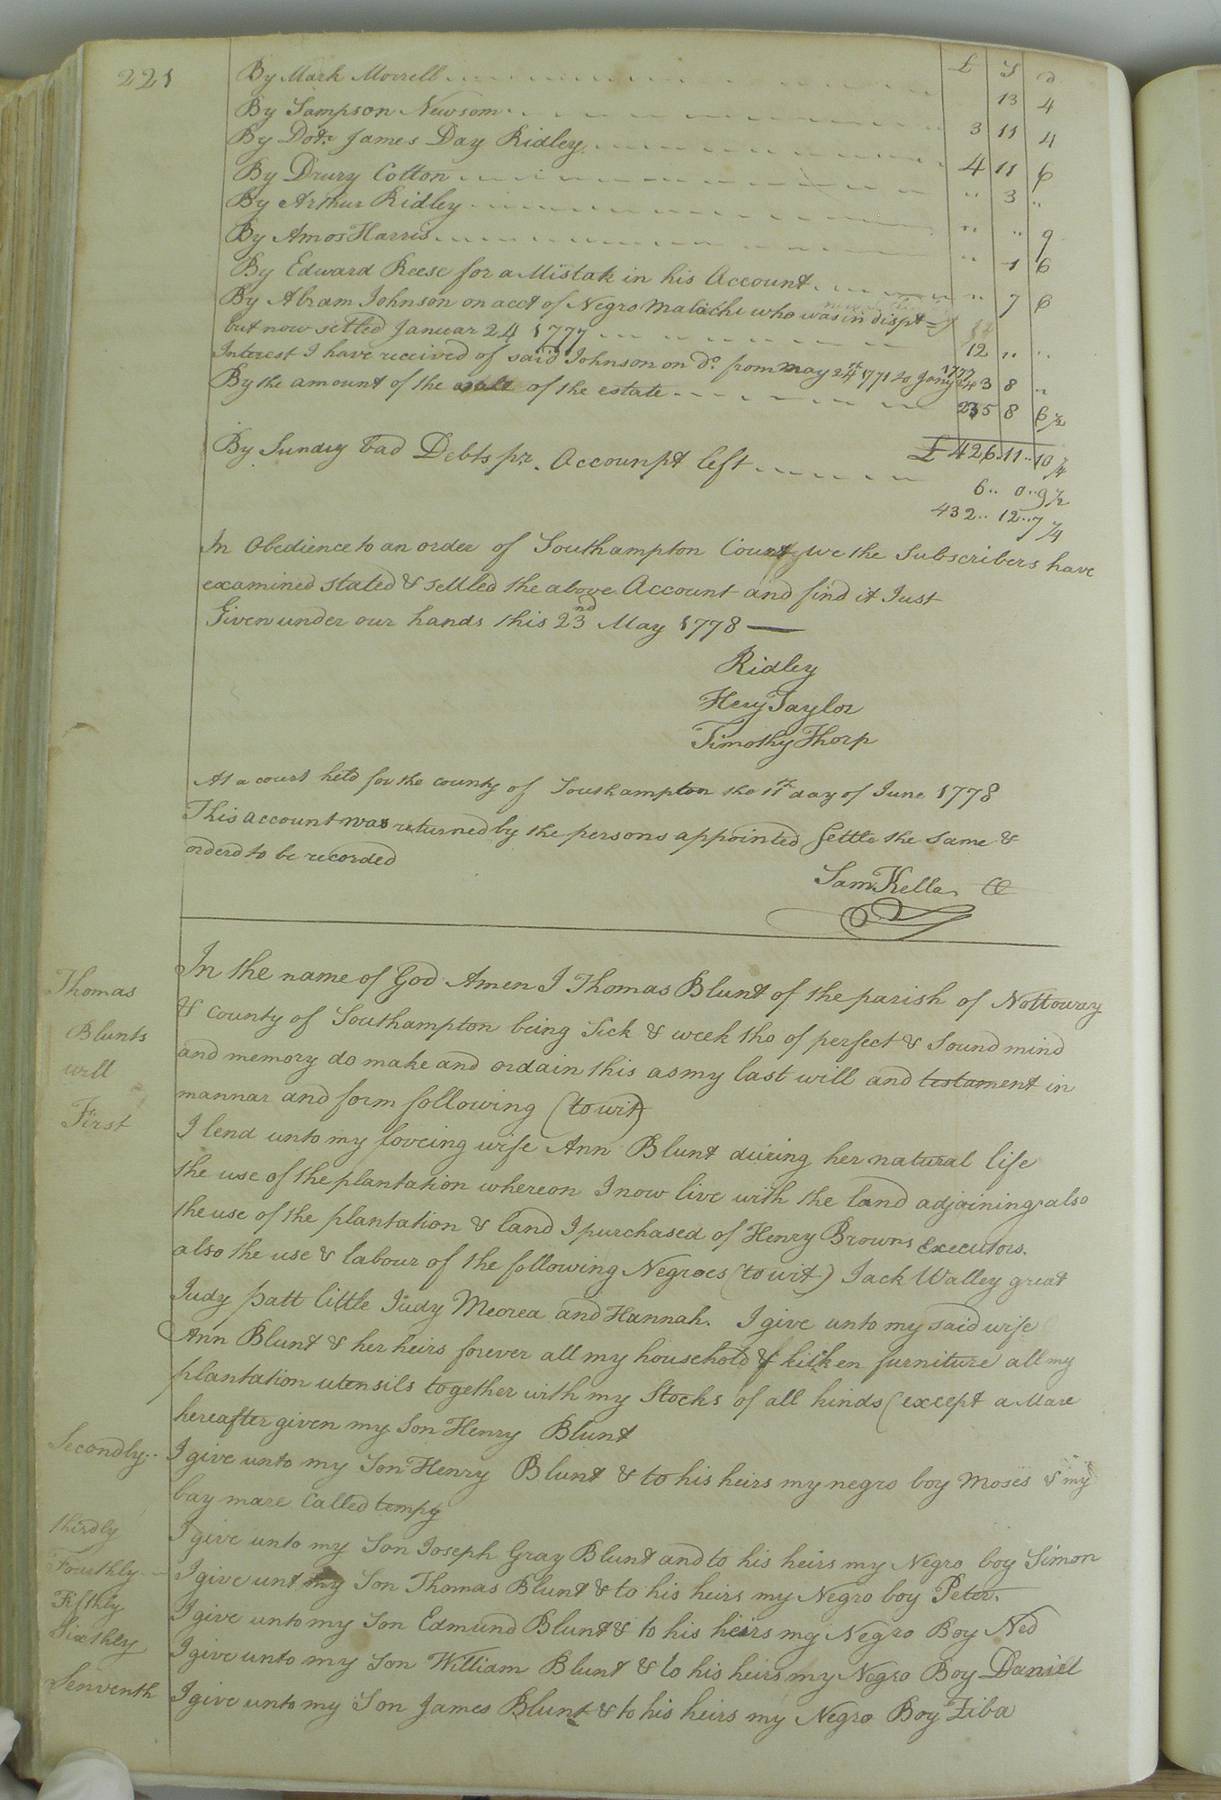 221
£ S d
By Mark Morrell 13 4
By Sampson Newsom 3 11 4
By Dotr James Day Ridley 4 11 6
By Drury Cotton " 3 "
By Arthur Ridley " " 9
By Amos Harris " 1 6
By Edward Reese for a Mistak in his Account " 7 6
By Abram Johnson on acct of Negro Malachi who was in dispt =
but now settled Januar 24 1777 12 " "
Interest I have received of said Johnson on do. from may 24th 1771 to Jany 1777 3 8 "
By the amount of the sale of the estate 235 8 6 1/2
£ 426 .. 11 .. 10 1/4
By Sundry bad Debts pr. Accounpt left 6 .. 0 .. 9 1/2
432 .. 12 .. 7 1/4
In Obedience to an order of Southampton County we the Subscribers have
examined stated & settled the above Account and find it Just
Given under our hands this 23nd May 1778
Ridley
Heny Taylor
Timothy Thorp
At a court held for the county of Southampton the 11th day of June 1778
This account was returned by the persons appointed Settle the same &
orderd to be recorded
Sam Kello CC
Thomas
Blunts
will
In the name of God Amen I Thomas Blunt of the parish of Nottoway
& county of Southampton being Sick & week tho of perfect & Sound mind
and memory do make and ordain this as my last will and testament in
mannar and form following (to wit)
First I lend unto my loveing wife Ann Blunt during her natural life
the use of the plantation whereon I now live with the land adjoining also
the use of the plantation & land I purchased of Henry Browns Executors.
also the use & labour of the following Negroes (to wit) Jack Walley great
Judy patt little Judy Meorea and Hannah. I give unto my said wife
Ann Blunt & her heirs forever all my household & kitken furniture all my
plantation utensils together with my Stocks of all kinds (except a Mare
hereafter given my Son Henry Blunt
Secondly.. I give unto my Son Henry Blunt & to his heirs my negro boy Moses & my
bay mare called tempy
thirdly I give unto my Son Joseph Gray Blunt and to his heirs my Negro boy Simon
Fourthly I give unt my Son Thomas Blunt & to his heirs my Negro boy Peter.
Fifthly I give unto my Son Edmund Blunt & to his heirs my Negro Boy Ned
Sixthly I give unto my Son William Blunt & to his heirs my Negro Boy Daniel
Senventh I give unto my Son James Blunt & to his heirs my Negro Boy Ziba